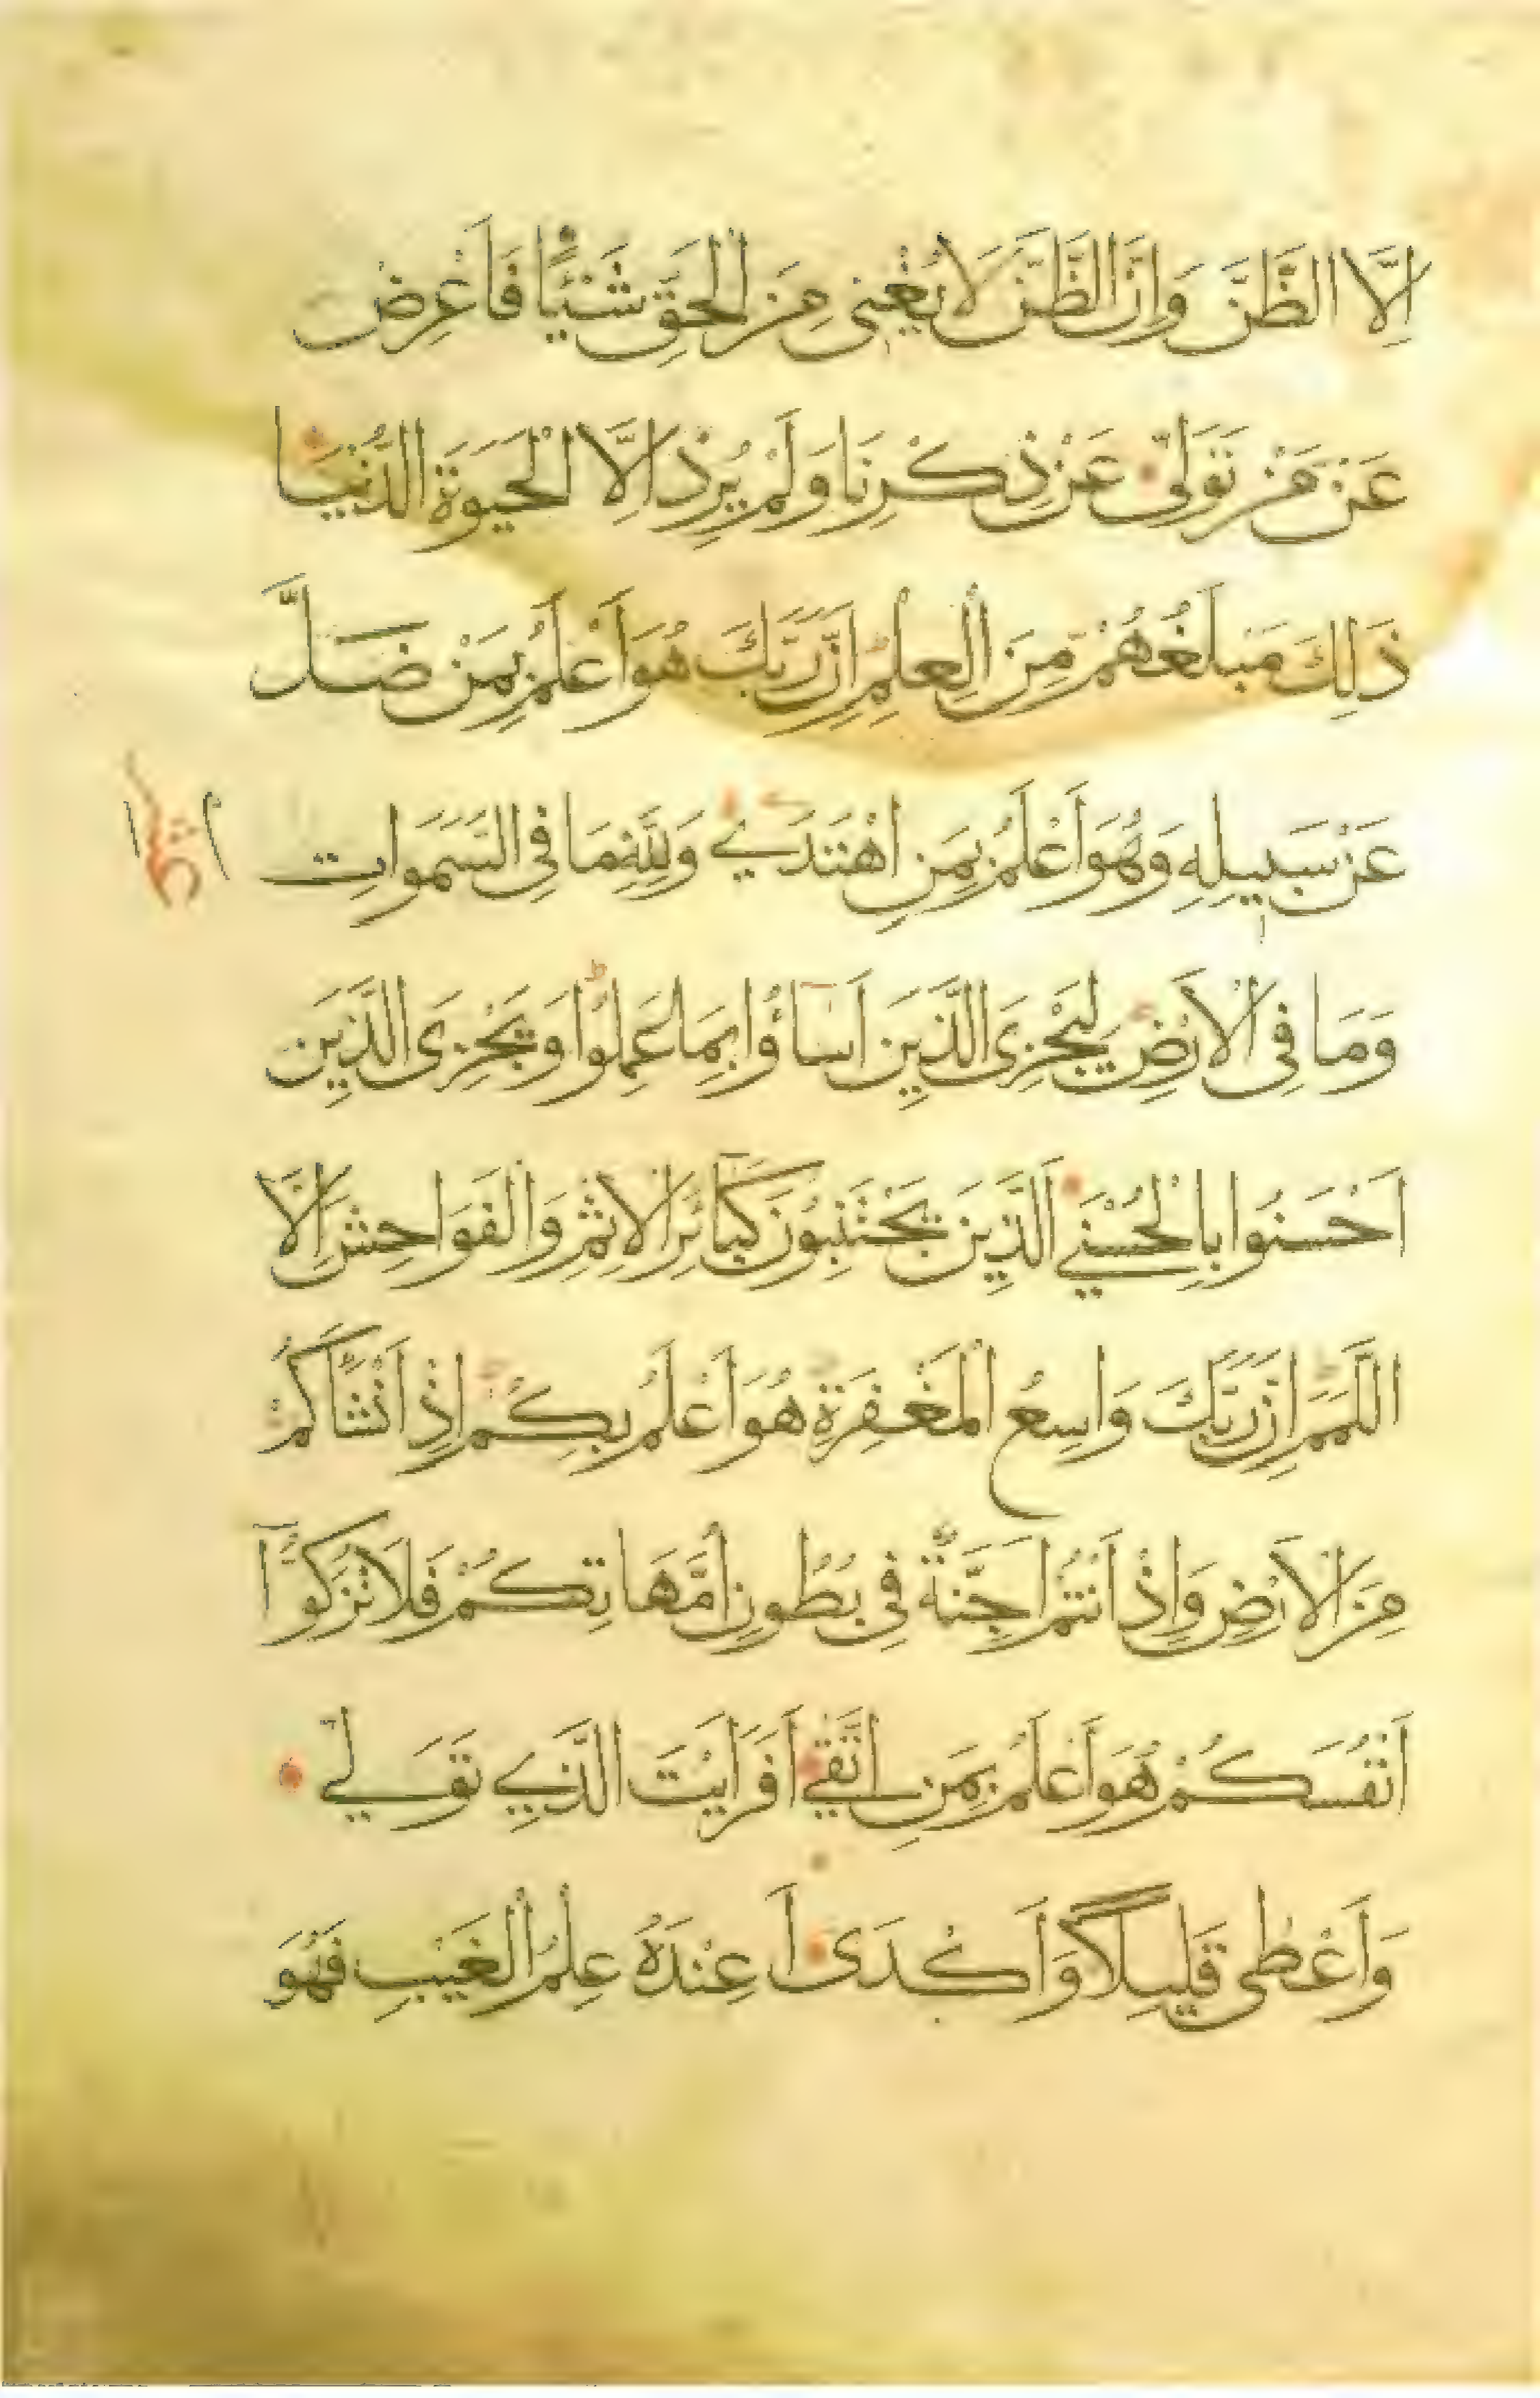 اِلَّا الظَّنَّ وَاِنَّ الظَّنَّ لَا يُغْنِى مِنَ الْحَقِّ شَيْئًا فَاَعْرِضْ
عَنْ مَنْ تَوَلّٰى عَنْ ذِكْرِنَا وَلَمْ يُرِدْ اِلَّا الْحَيٰوةَ الدُّنْيَا
ذَلِكَ مَبْلَغُهُمْ مِنَ الْعِلْمِ اِنَّ رَبَّكَ هُوَ اَعْلَمُ بِمَنْ ضَلَّ
عَنْ سَبِيلِهِ وَهُوَ اَعْلَمُ بِمَنِ اهْتَدَي وَلِلّٰهِ مَا فِى السَّمَوَاتِ
وَمَا فِى الْاَرْضِ لِيَجْزِىَ الَّذِينَ اَسَاؤُا بِمَا عَمِلُوا وَيَجْزِىَ الَّذِينَ
اَحْسَنُوا بِالْحُسْنَي الَّذِينَ يَجْتَنِبُونَ كَبَآئِرَ الْاِثْمِ وَالْفَوَاحِشَ اِلَّا
اللَّمَمَ اِنَّ رَبَّكَ وَاسِعُ الْمَغْفِرَةِ هُوَ اَعْلَمُ بِكُمْ اِذْ اَنْشَاَكُمْ
مِنَ الْاَرْضِ وَاِذْ اَنْتُمْ اَجِنَّةٌ فِى بُطُونِ اُمَّهَاتِكُمْ فَلَا تُزَكُّوآ
اَنْفُسَكُمْ هُوَ اَعْلَمُ بِمَنِ اتَّقَي اَفَرَاَيْتَ الَّذِي تَوَلّي
وَاَعْطٰى قَلِيلًا وَاَكْدَى اَعِنْدَهُ عِلْمُ الْغَيْبِ فَهُوَ